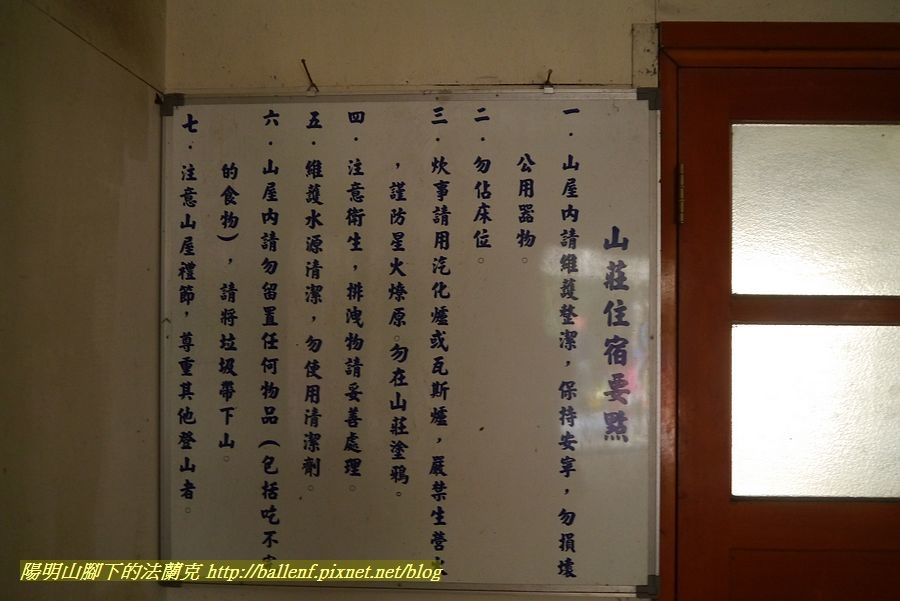 山莊住宿要點
一．山屋內請維護整潔，保持安寧，勿損壞
公用器物。
二．勿佔床位。
三．炊事請用汽化爐或瓦斯爐，嚴禁生營火
，謹防星火燎原。勿在山莊塗鴉。
四．注意衛生，排洩物請妥善處理。
五．維護水源清潔，勿使用清潔劑。
六．山屋內請勿留置任何物品（包括吃不完
的食物），請將垃圾帶下山。
七．注意山屋禮節，尊重其他登山者。
陽明山腳下的法蘭克 http://ballenf.pixnet.net/blog